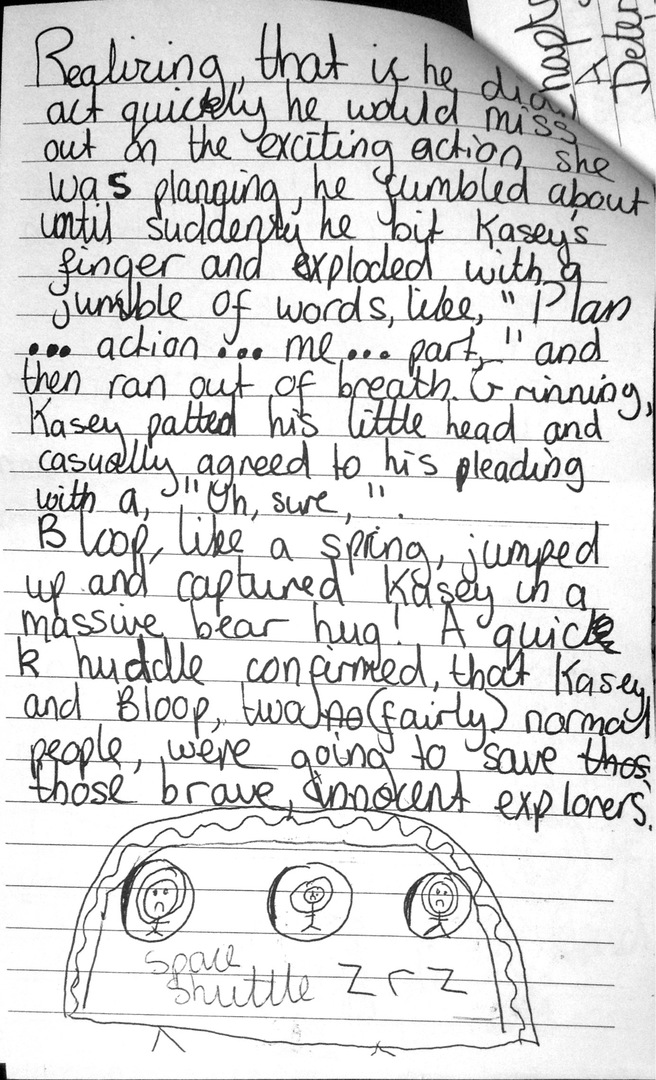 Realizing, that is he did
act quickly he would miss
out on the exciting action she
was planning, he fumbled about
until suddenly he bit Kasey's
finger and exploded with a
jumble of words, like, "Plan
... action ... me ... part," and
then ran out of breath. Grinning,
Kasey patted his little head and
casually agreed to his pleading
with a, "Uh, sure,".
Bloop, like a spring, jumped
up and captured Kasey in a
massive bear hug! A quic
k huddle confirmed, that Kasey
and Bloop, two no (fairly) normal
people, were going to save thos
those brave, innocent explorers.
Space
Shuttle ZrZ
hapt
A
Deter